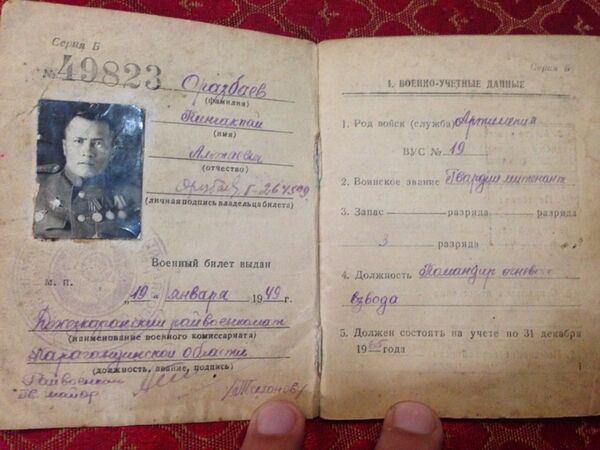 Серия Б
№ 49823
Оразбаев
(фамилия)
(имя)
(отчество)
Г-264599
(личная подпись владельца билета)
Военный билет выдан
М. П.
„19“ января 1949 г.
райвоенкомат
(наименование военного комиссариата)
Карагандинской области
(должность, звание, подпись)
Райвоенком
гв. майор
Серия Б
I. ВОЕННО-УЧЕТНЫЕ ДАННЫЕ
1. Род войск (служба) Артиллерия
ВУС № 19
2. Воинское звание Гвардии лейтенант
3. Запас разряда разряда
3 разряда
4. Должность Командир огневого
взвода
5. Должен состоять на учете по 31 декабря
19 года